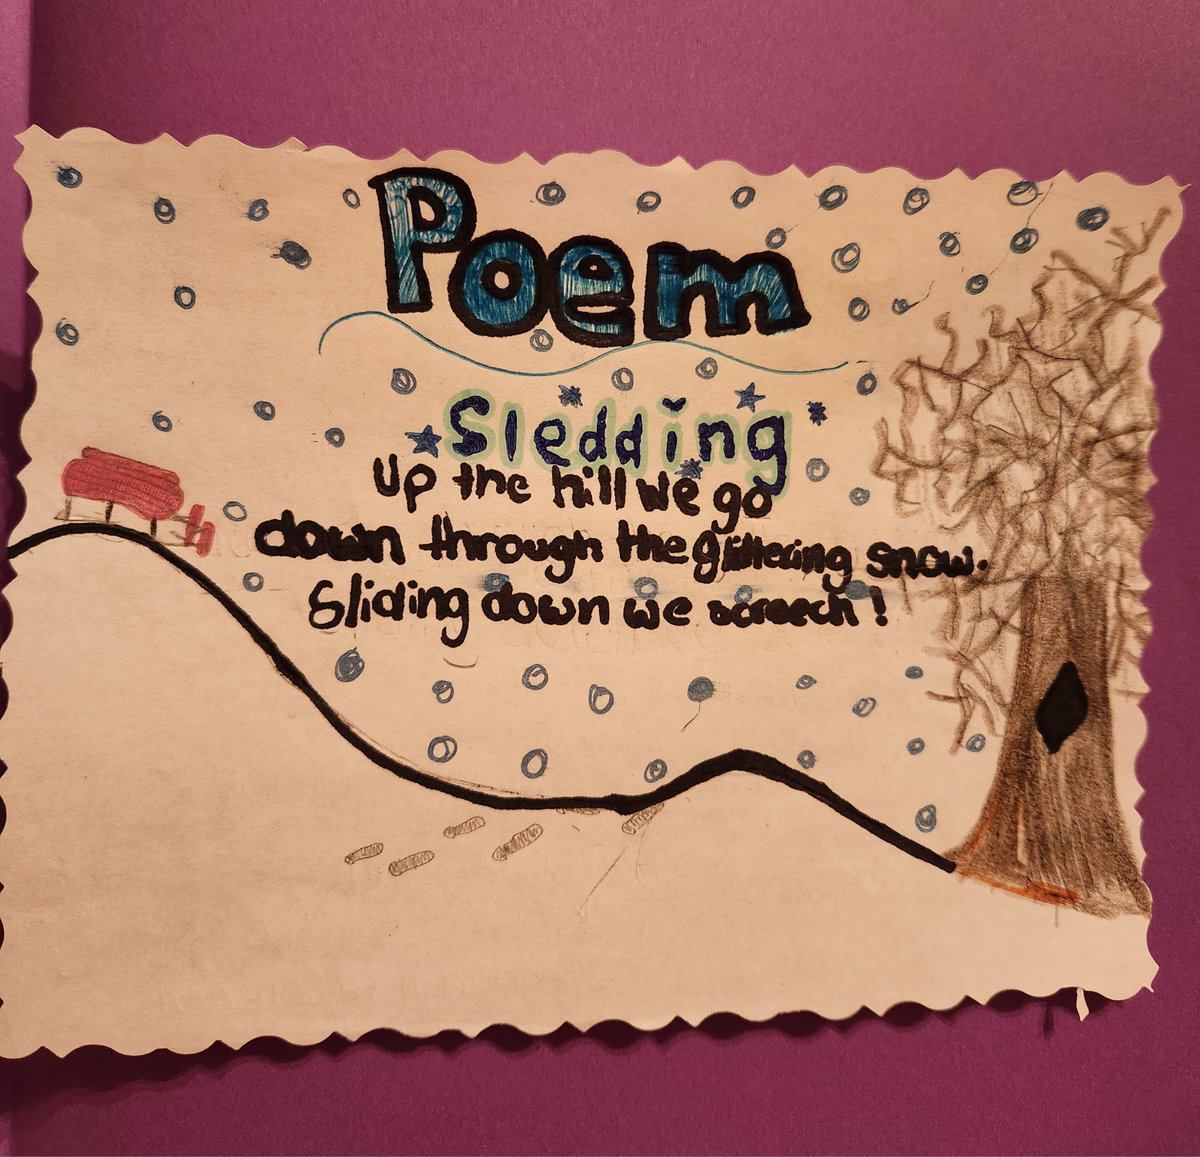 Poem
Sledding
Up the hill we go
down through the glittering snow.
Sliding down we screech!